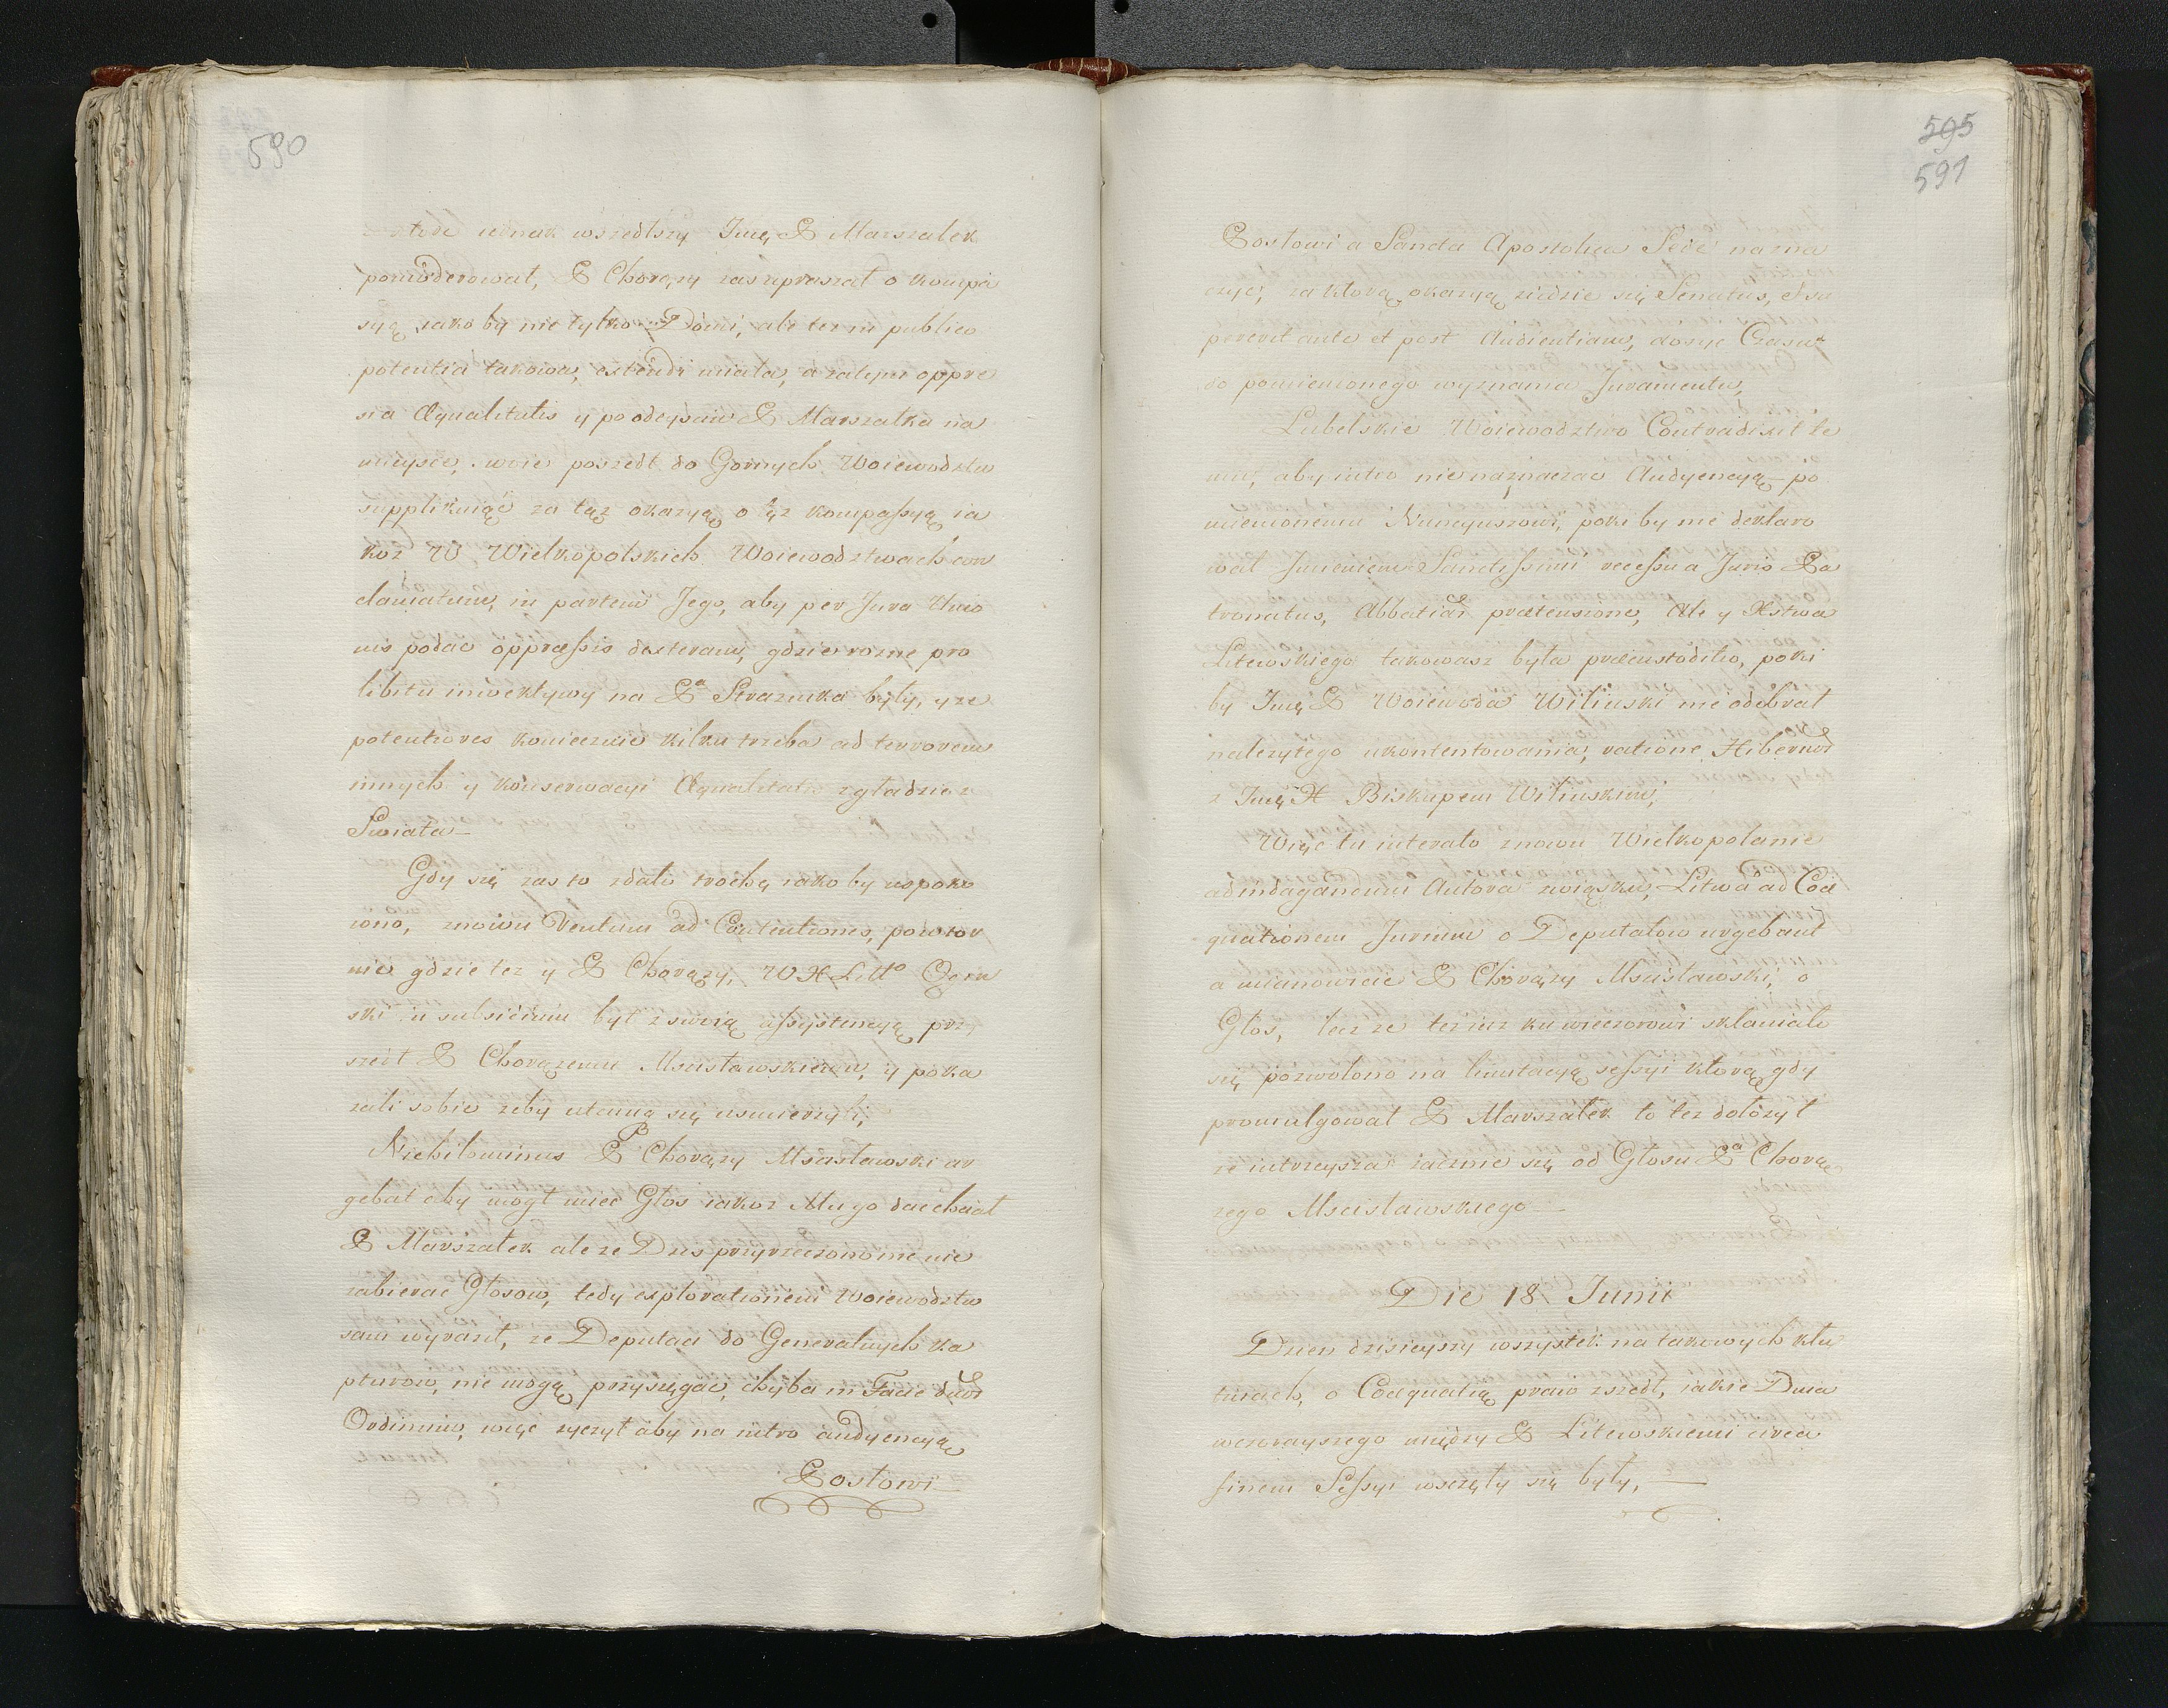 590
iednak wszedłszy Imę P Marszałek
pomoderował, P Chorąży zas upraszał o kompa
syą jako by nie tylko Domi, ale tez in publico
potentia takowa, extendi miała, a zatym oppre
sia Æqualitatis y po odeysciu P Marszałka na
mieysce, swoie poszedł do Gornych Woiewodztw
supplikuiąć za tąz okazyą o tęz kompaſsyą ia
koz W Wielkopolskich Woiewodztwach con
clamatum, in partem Jego, aby per Jura Unio
nis podać oppræſsis dexteram, gdzie rozne pro
libitu inwektywy na Pa Straznika były, y ze
potentiores koniecznie kilku trzeba ad terrorem
innych y konserwacyi Æqualitatis zgładzic z
Swiata
Gdy się zas to zdało trochę iako by uspoko
iono, znowu Ventum ad Contentiones, powtor
nie gdzie tez y P Chorąży, W X Litto Ogin
ski in subsidium był z swoią aſsystencyą przy
szedł P Chorązemu Mscisławskiemu, y poka
zali sobie zeby utemną się usmierzyli,
Nichilominus P Chorąży Mscisławski ur
gebat aby mogł miec Głos iakoz Mu go dac chciał
P Marszałek ale ze Dzis przyrzeczono nie
zabierac Głosow, tedy explorationem Woiewodztw
sam wyraził, ze Deputaci do Generalnych ka
pturow, nie mogą przysięgać, chyba in Facie duor
Ordinum, więc zyczył aby na iutro audyencyą
Posłowi
595
591
Posłowi a Sancta Apostolica Sede nazna
czyć, za ktorą okazyą ziedzie się Senatus, I su
pererit ante et post Audientiam, dosyc Czasu
do pomienionego wyznania Juramentu,
Lubelskie Woiewodztwo Contradixit te
mu, aby iutro nie naznaczac Audyencyą po
mienionemu Nuncyuszowi, poki by nie deklaro
wał Imieniem Sanctiſsimi receſsu a Juris Pa
tronatus, Abbatiar prætensione, Ale y Xstwa
Litewskiego takowasz była præcustoditio, poki
by Imę P Woiewoda Wilinski nie odebrał
nalezytego ukontentowania, ratione Hibernor
z Imę X Biskupem Wilinskim,
Więc tu iterato znowu Wielkopolanie
ad indagandum Autora związku, Litwa ad Coæ
quationem Jurium o Deputatow urgebant
a mianowicie P Chorąży Mscisławski, o
Głos, lecz ze tez iuz ku wieczorowi skłaniało
się pozwolono na limitacyą seſsyi ktorą gdy
promulgował P Marszałek to tez dołozył
ze iutrzeysza zacznie się od Głosu Pa Chorą
zego Mscisławskiego
Die 18 Junii
Dzien dzisieyszy wszystek na takowych kłu
tniach, o Coæquatią praw zszedł, iakie Dnia
wczorayszego między P Litewskiemi circa
finem Seſsyi wszczęły się były,